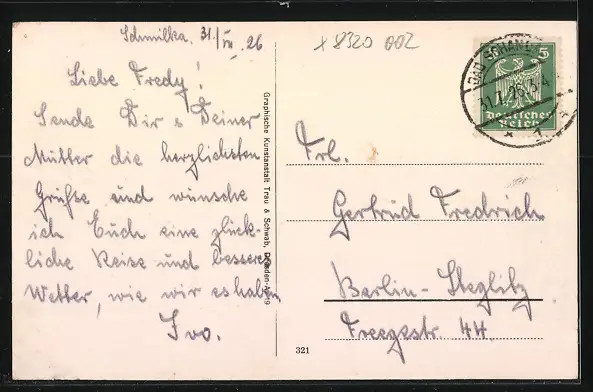 Schmilka, 31./VII. 26
Liebe Fredy!
Sende Dir & Deiner
Mutter die herzlichsten
Grüße und wünsche
ich Euch eine glück-
liche Reise und besseres
Wetter, wie wir es haben
Ivo.
Graphische Kunstanstalt Trau & Schwab, Dresden-A. 19
x 8320 002
BAD SCHAN
31.7.26. 3-4
5
Deutsches
Reich
Frl.
Gertrud Fredrich
Berlin-Steglitz
Freegestr. 44.
321